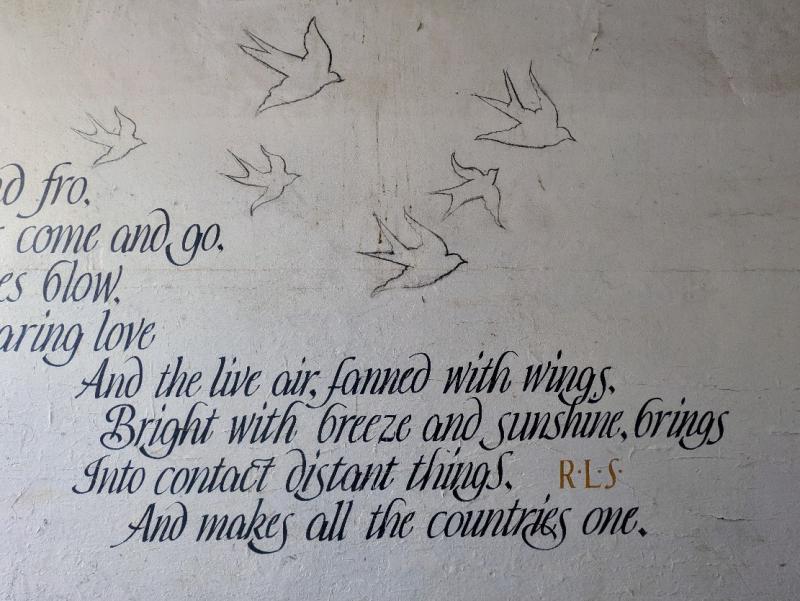 d fro,
come and go,
es blow,
aring love
And the live air, fanned with wings,
Bright with breeze and sunshine, brings
Into contact distant things, R·L·S·
And makes all the countries one.